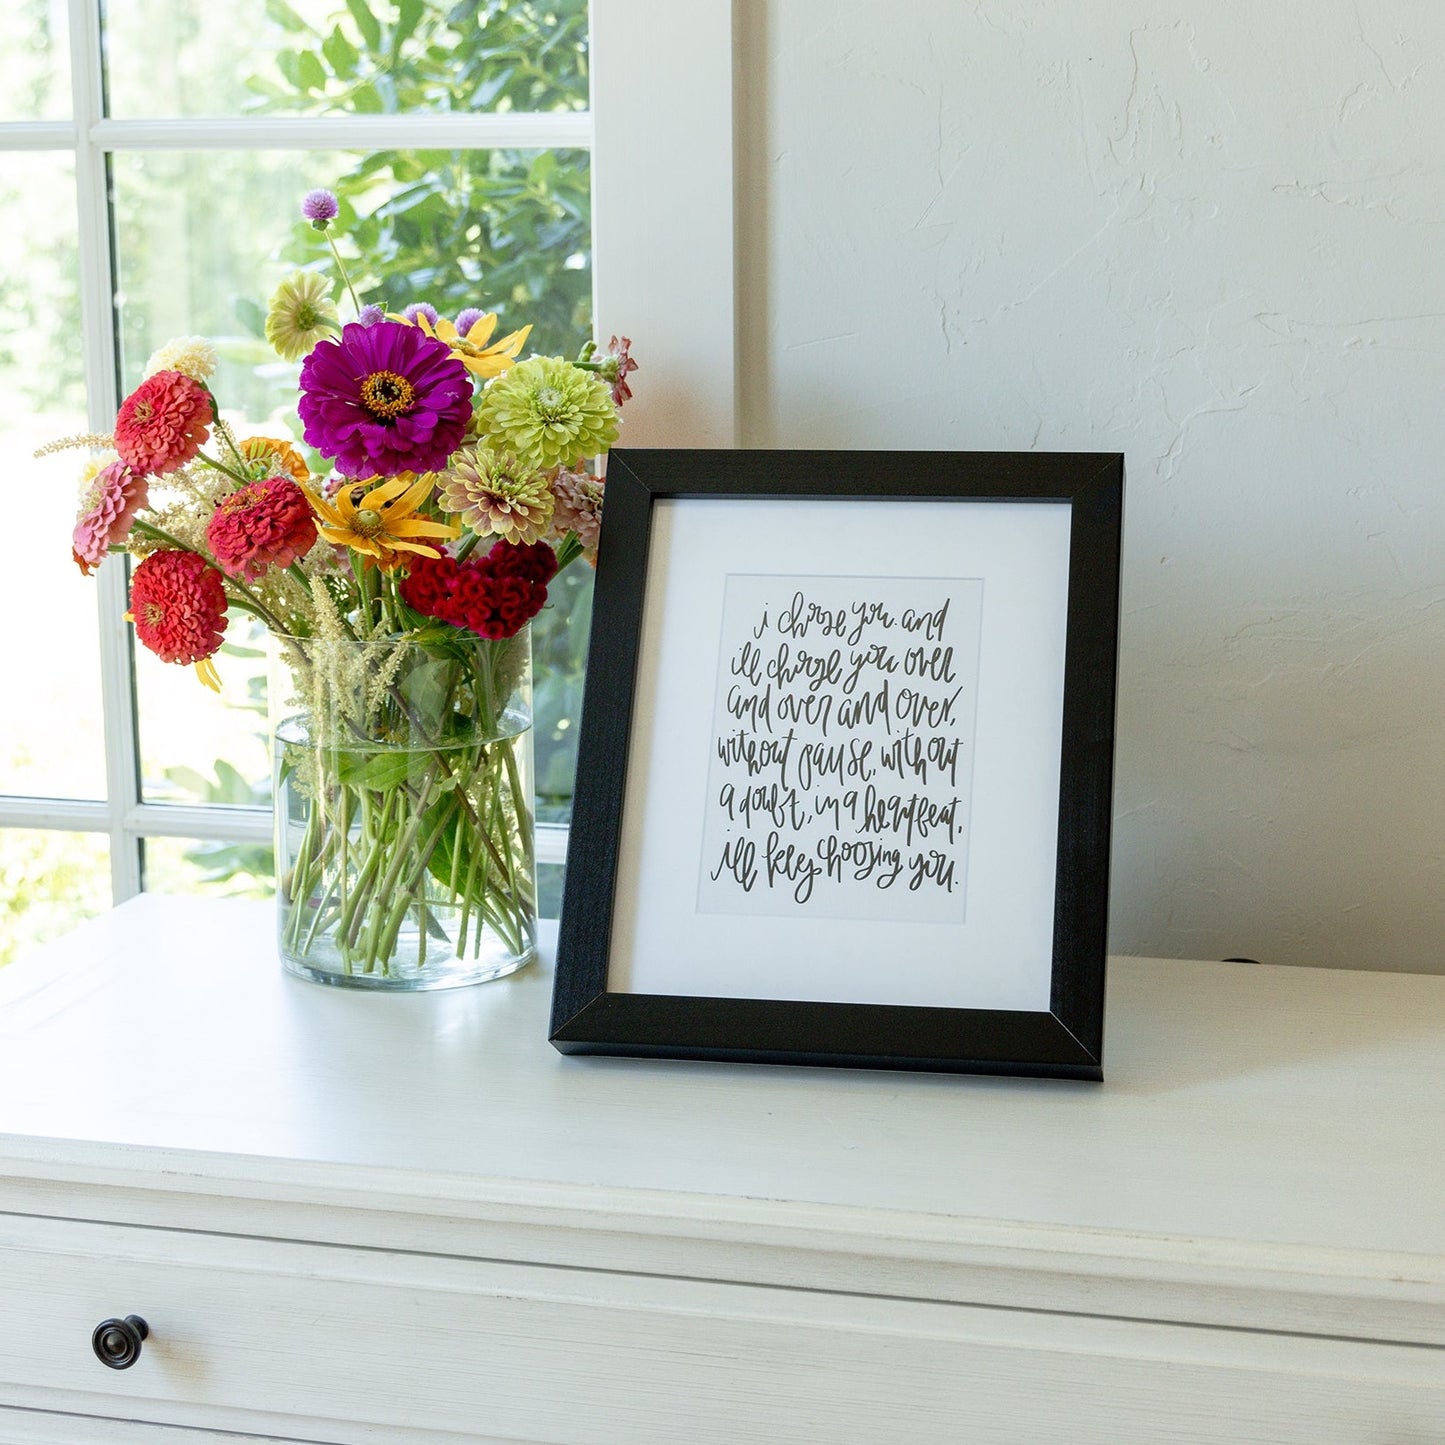 i choose you. and
i'll choose you over
and over and over,
without pause, without
a doubt, in a heartbeat,
i'll keep choosing you.